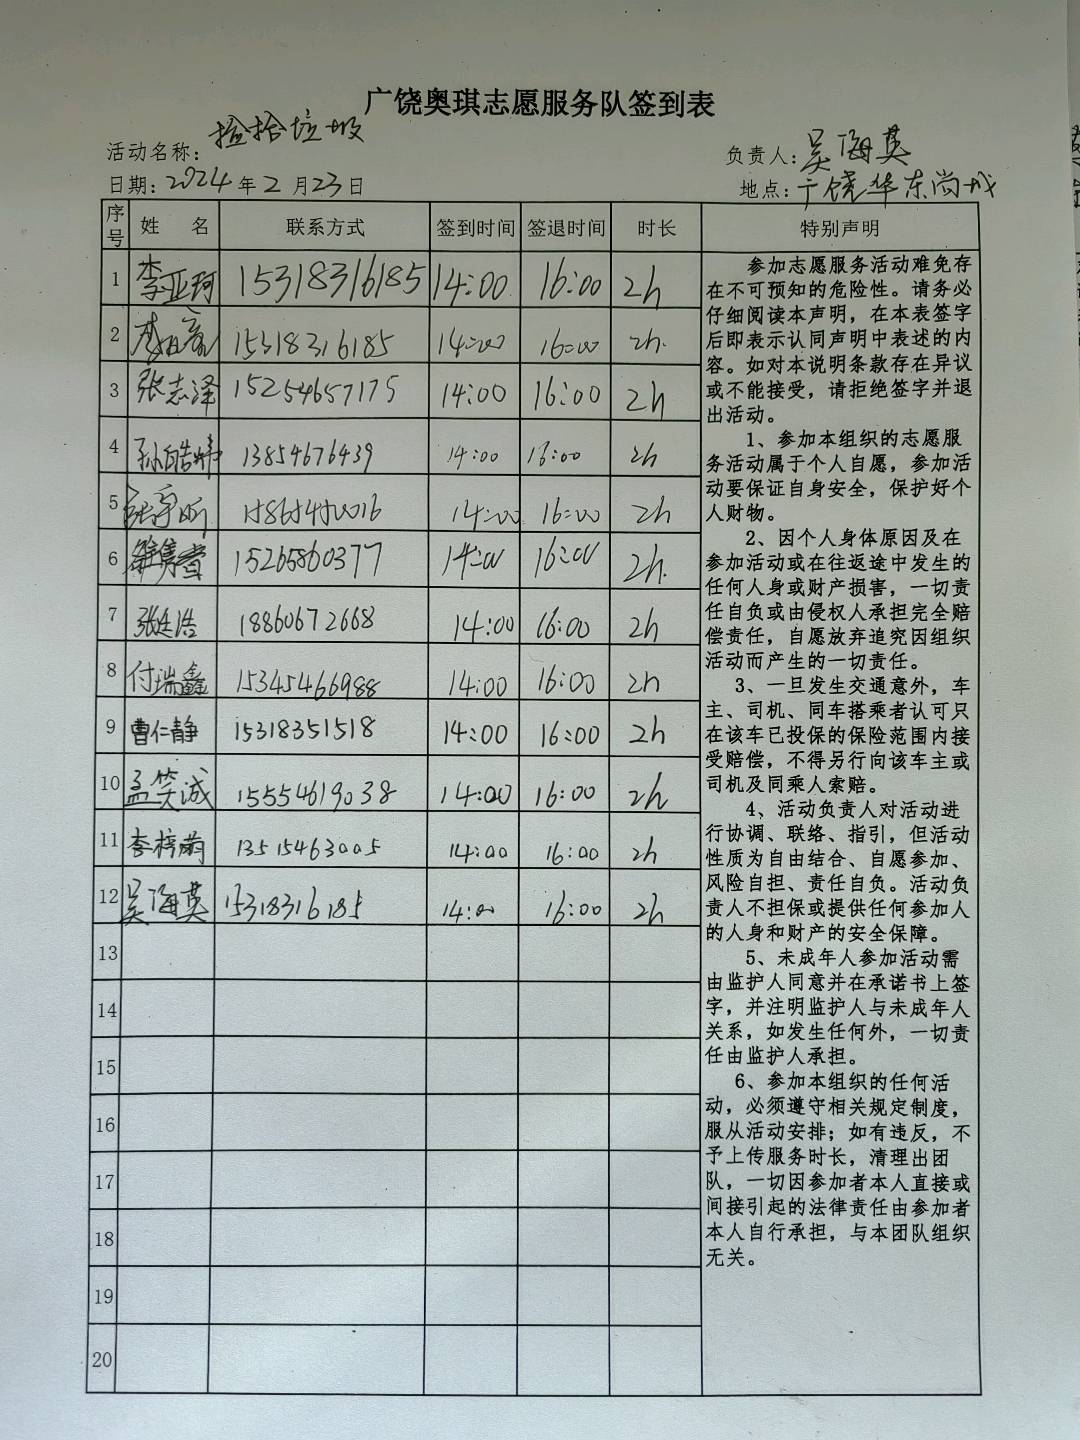 广饶奥琪志愿服务队签到表
活动名称：捡拾垃圾
负责人：吴海英
日期：2024年2月23日
地点：广饶华东尚城
序号 姓 名 联系方式 签到时间 签退时间 时长 特别声明
1 李亚珂 15318316185 14:00 16:00 2h
2 15318316185 14:00 16:00 2h.
3 张志泽 15254657175 14:00 16:00 2h
4 孙皓婷 13854676439 14:00 16:00 2h
5 14:00 16:00 2h
6 15265860377 14:00 16:00 2h.
7 张廷浩 18860672668 14:00 16:00 2h
8 付瑞鑫 15345466988 14:00 16:00 2h
9 曹仁静 15318351518 14:00 16:00 2h
10 孟笑诚 15554619038 14:00 16:00 2h
11 李梓萌 13515463005 14:00 16:00 2h
12 吴海英 15318316185 14:00 16:00 2h
13
14
15
16
17
18
19
20
参加志愿服务活动难免存
在不可预知的危险性。请务必
仔细阅读本声明，在本表签字
后即表示认同声明中表述的内
容。如对本说明条款存在异议
或不能接受，请拒绝签字并退
出活动。
1、参加本组织的志愿服
务活动属于个人自愿，参加活
动要保证自身安全，保护好个
人财物。
2、因个人身体原因及在
参加活动或在往返途中发生的
任何人身或财产损害，一切责
任自负或由侵权人承担完全赔
偿责任，自愿放弃追究因组织
活动而产生的一切责任。
3、一旦发生交通意外，车
主、司机、同车搭乘者认可只
在该车已投保的保险范围内接
受赔偿，不得另行向该车主或
司机及同乘人索赔。
4、活动负责人对活动进
行协调、联络、指引，但活动
性质为自由结合、自愿参加、
风险自担、责任自负。活动负
责人不担保或提供任何参加人
的人身和财产的安全保障。
5、未成年人参加活动需
由监护人同意并在承诺书上签
字，并注明监护人与未成年人
关系，如发生任何外，一切责
任由监护人承担。
6、参加本组织的任何活
动，必须遵守相关规定制度，
服从活动安排；如有违反，不
予上传服务时长，清理出团
队，一切因参加者本人直接或
间接引起的法律责任由参加者
本人自行承担，与本团队组织
无关。